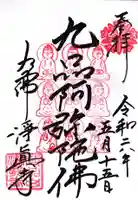 奉拝
令和六年
五月十五日
九品阿弥陀佛
九佛
浄真寺